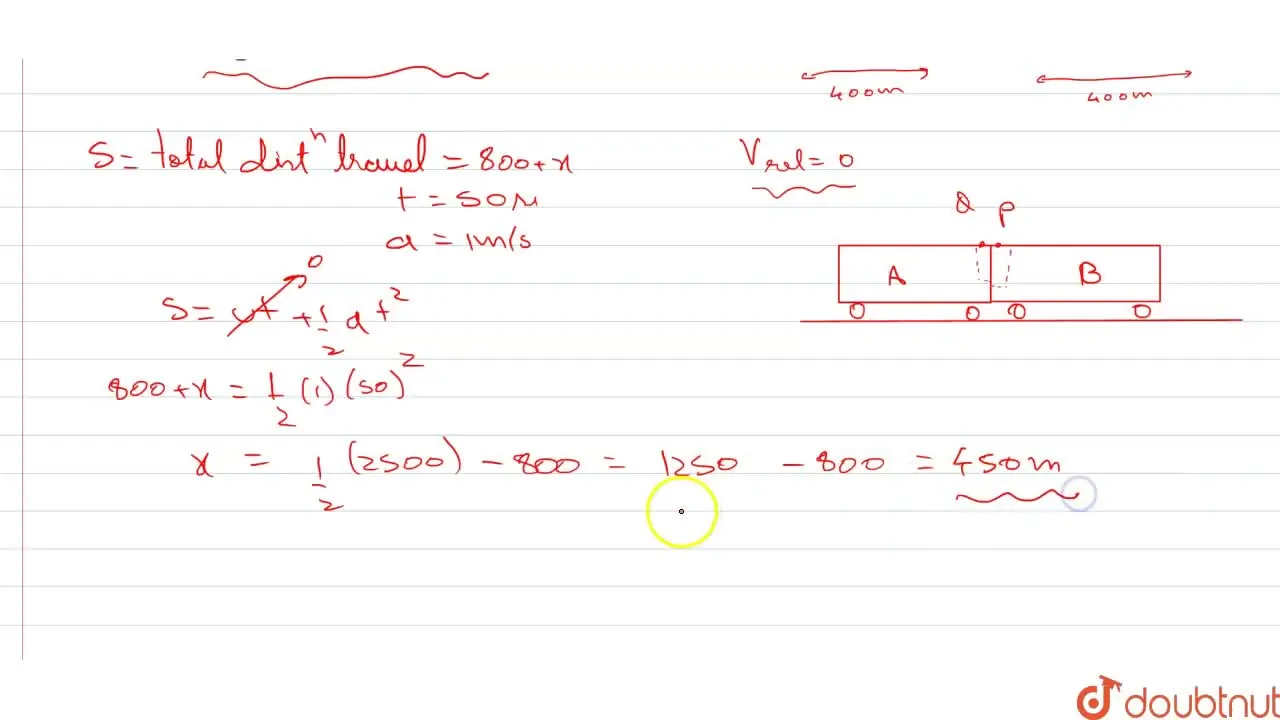 400m 400m
S = total distⁿ travel = 800+x
t = 50s
a = 1m/s
V rel = 0
Q P
A B
0
S = ut + 1/2 at²
800+x = 1/2 (1) (50)²
x = 1/2 (2500) - 800 = 1250 - 800 = 450m
doubtnut